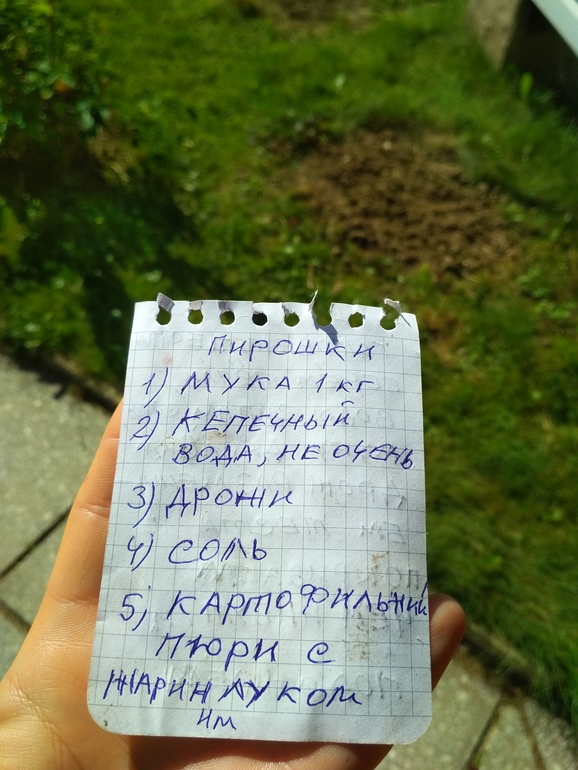 ПИРОШКИ
1) МУКА 1 КГ
2) КЕПЕЧНЫЙ
ВОДА, НЕ ОЧЕНЬ
3) ДРОЖИ
4) СОЛЬ
5) КАРТОФИЛЬНИЙ
ПЮРИ С
ЖАРИН ЛУКОМ
ИМ